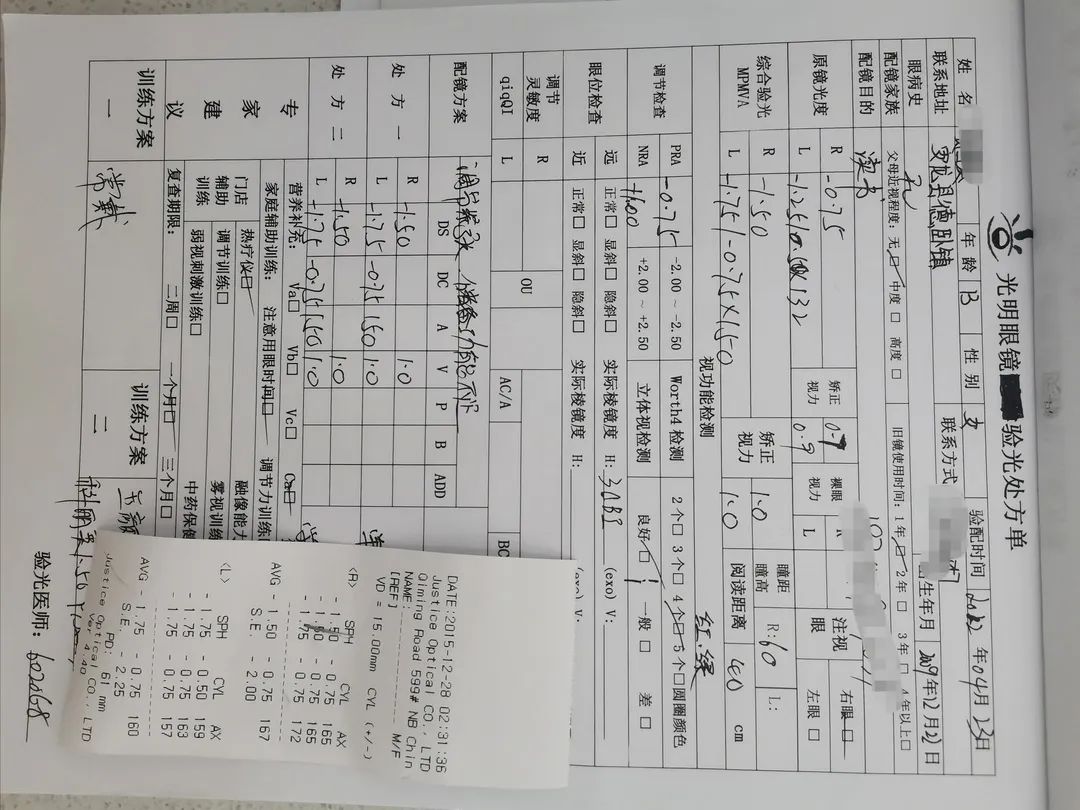 光明眼镜 验光处方单
姓 名 年龄 13 性别 女 联系方式 验配时间 2022年04月23日
联系地址 安龙县德卧镇 出生年月 2009年12月21日
眼病史 无
配镜家族 父母近视程度:无□ 中度□ 高度□ 旧镜使用时间:1年□ 2年□ 3年□ 4年以上□
配镜目的 读书
原镜光度 R -0.75 矫正视力 0.9 裸眼视力 R 注视眼 右眼□
L -1.25/ 132 0.9 L 左眼□
综合验光 MPMVA R -1.50 矫正视力 1.0 瞳距 瞳高 R:60 L:
L -1.75/-0.75×150 1.0 阅读距离 40 cm
视功能检测
调节检查 PRA -0.75 -2.00~-2.50 Worth4检测 2个□ 3个□ 4个□ 5个□ 圆圈颜色 红.绿
NRA +1.00 +2.00~+2.50 立体视检测 良好□ 一般□ 差□
眼位检查 远 正常□ 显斜□ 隐斜□ 实际棱镜度 H:3△BI (exo) V:
近 正常□ 显斜□ 隐斜□ 实际棱镜度 H: (exo) V:
调节灵敏度 R OU AC/A
qiqQI L BC
配镜方案
DS DC A V P B ADD
处方一 R -1.50 1.0
L -1.75 -0.75 150 1.0
处方二 R -1.50 1.0
L -1.75 -0.75 150 1.0
专家建议
营养补充: Va□ Vb□ Vc□ Ca□
家庭辅助训练: 注意用眼时间□ 调节力训练
门店辅助训练 热疗仪□ 融像能力
调节训练□ 雾视训练
弱视刺激训练□ 中药保健
复查期限: 二周□ 一个月□ 三个月□
训练方案一 常戴 训练方案二
验光医师: 602068
DATE:2015-12-28 02:31:36
Justice Optical CO., LTD
Qiming Road 599# NB Chin
NAME: M/F
[REF]
VD = 15.00mm CYL (+/-)
<R> SPH CYL AX
- 1.50 - 0.75 165
- 1.50 - 0.75 165
- 1.75 - 0.75 172
AVG - 1.50 - 0.75 167
S.E. - 2.00
<L> SPH CYL AX
- 1.75 - 0.50 159
- 1.75 - 0.75 163
- 1.75 - 0.75 157
AVG - 1.75 - 0.75 160
S.E. - 2.25
PD: 61 mm
Ver 4.40
Justice Optical CO., LTD